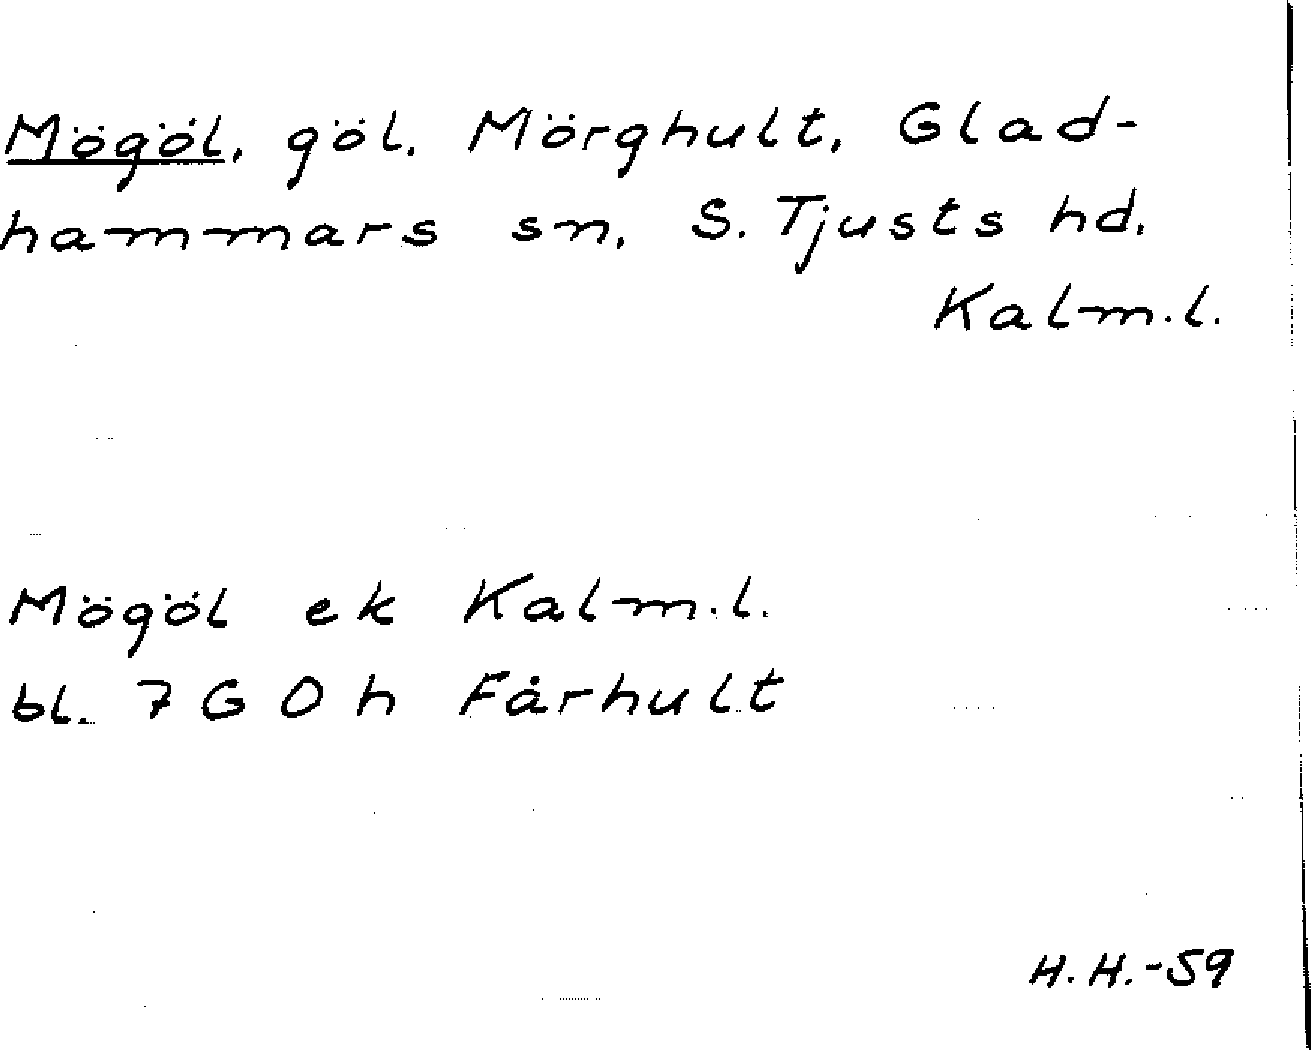 Mögöl, göl, Mörghult, Glad-
hammars sn, S. Tjusts hd,
Kalm.l.
Mögöl ek Kalm.l.
bl. 7 G O h Fårhult
H.H.-59